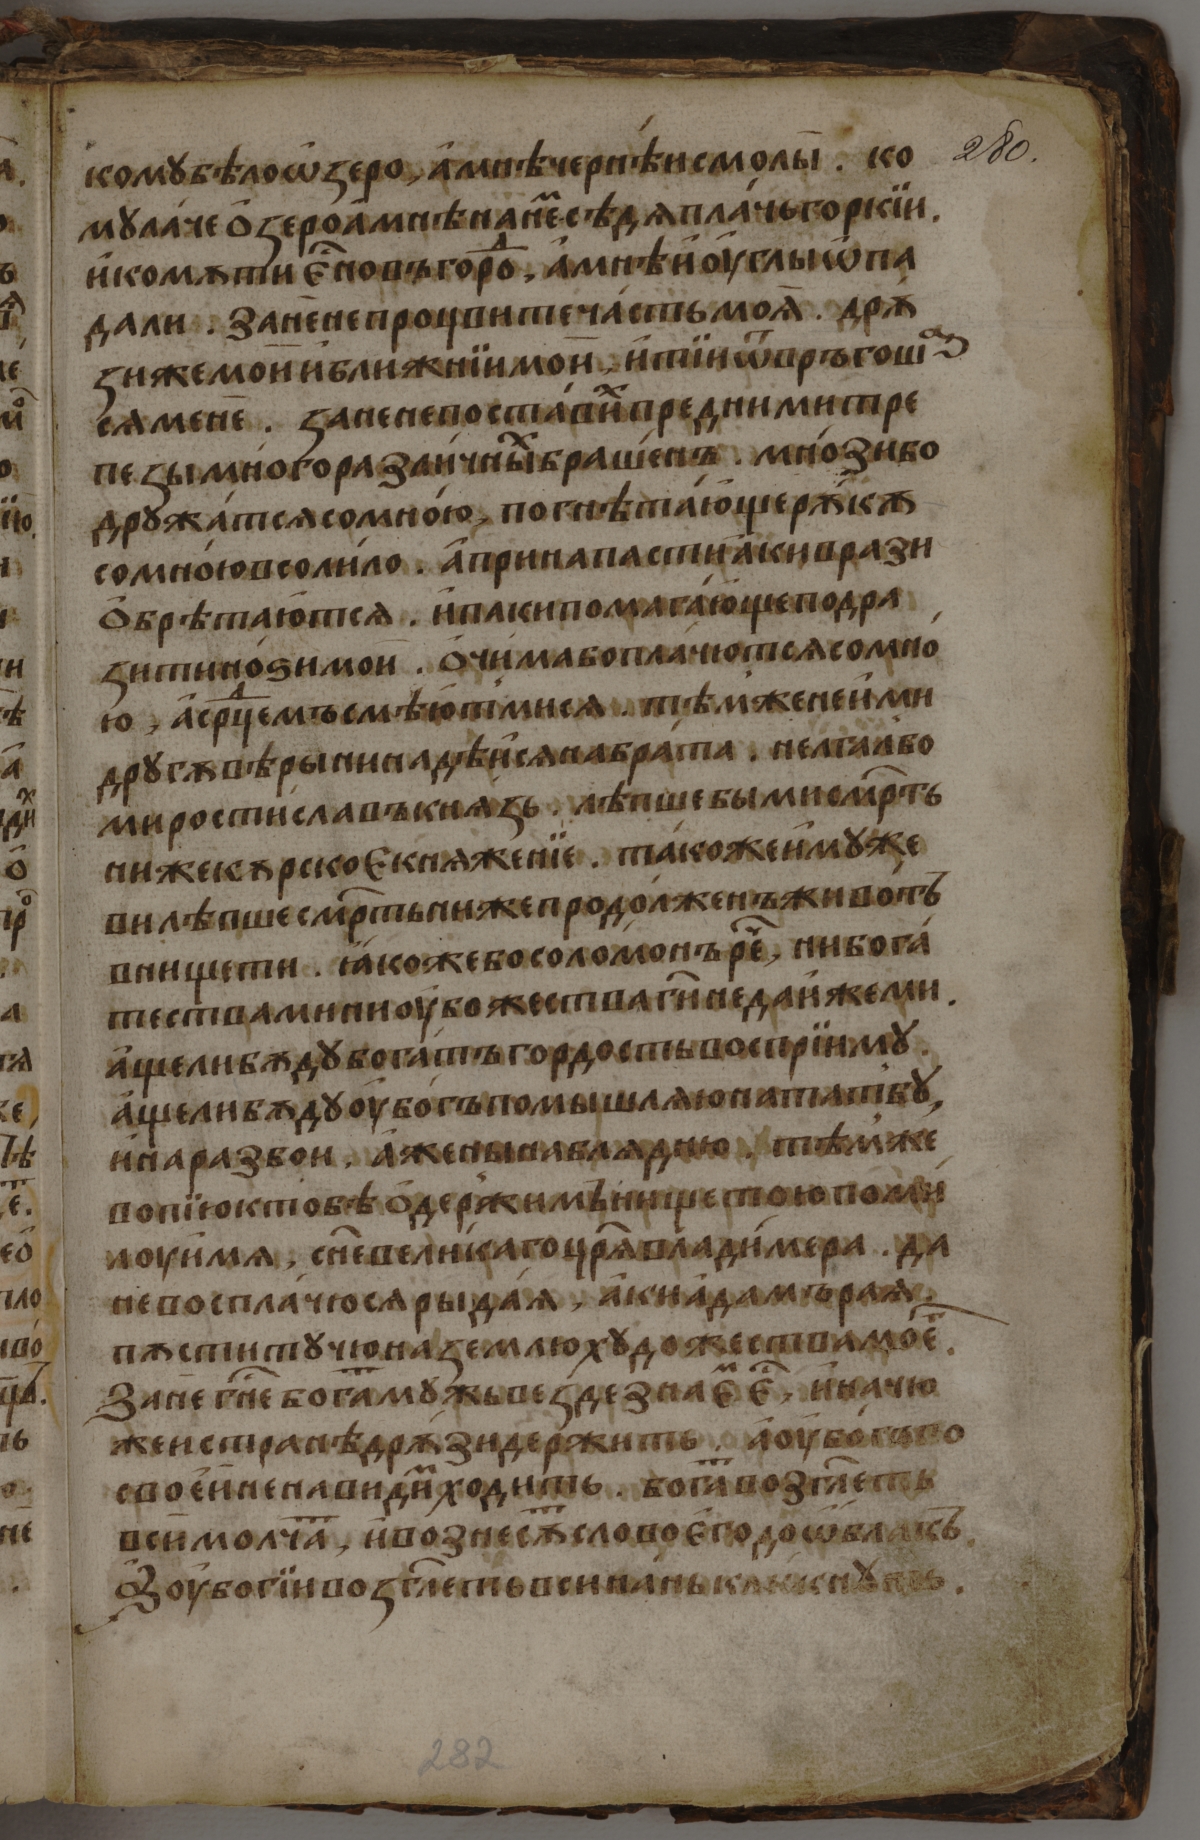 комꙋбѣлоѡ҆зеро, а҆мнѣчернѣи҆смолы̀. ко 280.
мꙋла́чеѻ҆́зероа҆мнѣнане́мсѣдяпла́чьгоркїи.
и҆комѫтиє҆́сть новъгоро́д, а҆мнѣи҆ оу҆глыѡ҆па
дали. зане́непроцвитеча́стьмоя̀. дрѫ
зижемоѝи҆ближнїимоѝ, и҆тїиѿвръгоша
сяменѐ. занепоста́вихпреднимитре
пезымногоразли́чныхбраше́нъ. мно́зибо
дружа́тсясомно́ю, погнѣта́ющерѫ́кѫ
сомно́ювсоли́ло. а҆принапастиа҆́кивраѕи
ѻ҆брѣта́ются. и҆пакипомага́ющеподра
зитино́ѕимои̂. ѻ҆чи́мабопла́чютсясомно́
ю, а҆срдцемъсмѣю́тмися. тѣ́мженеи҆ми
другѫвѣрынинадѣ́йсянабра́та. нелга́лбо
миростиславъкня́зь. лѣпшебымисмрть
нижекѫрскоєкняже́нїе. та́кожеи҆мꙋже
вилѣпшесмртьнижепродо́лженъживо́тъ
внищети. ꙗ҆́кожебосоломо́нърече, нибога́
тествамининоу҆божествагинедайжеми.
а҆щелибѫдꙋбога́тъго́рдостьвоспрїимꙋ.
а҆щелибѫдꙋоу҆бо́гъпомышля́юнататбꙋ,
и҆наразбои, а҆женынаблядню. тѣ́мже
вопїюктобѣѻ҆держи́мънищетоюпоми́
лоуимя, сн҃евели́кагоцр҃явлади́мера. да
невоспла́чюсярыда́я, а҆киа҆да́мърая.
пѫститꙋчюназемлюхꙋдожествамоє҆̀.
Занегн҃ебогатмꙋжьвездезнаємє҆сть, и҆начю
жеистранѣдрѫ́зидержить. а҆оу҆бо́гъво
свое́йненавидимходить. богатвозглеть
всимолчат, и҆вознесѫтсловоє҆годоѡ҆блакъ.
Ѻ҆оу҆бо́гїивозглетьвсинаньклики́кнꙋть.
282